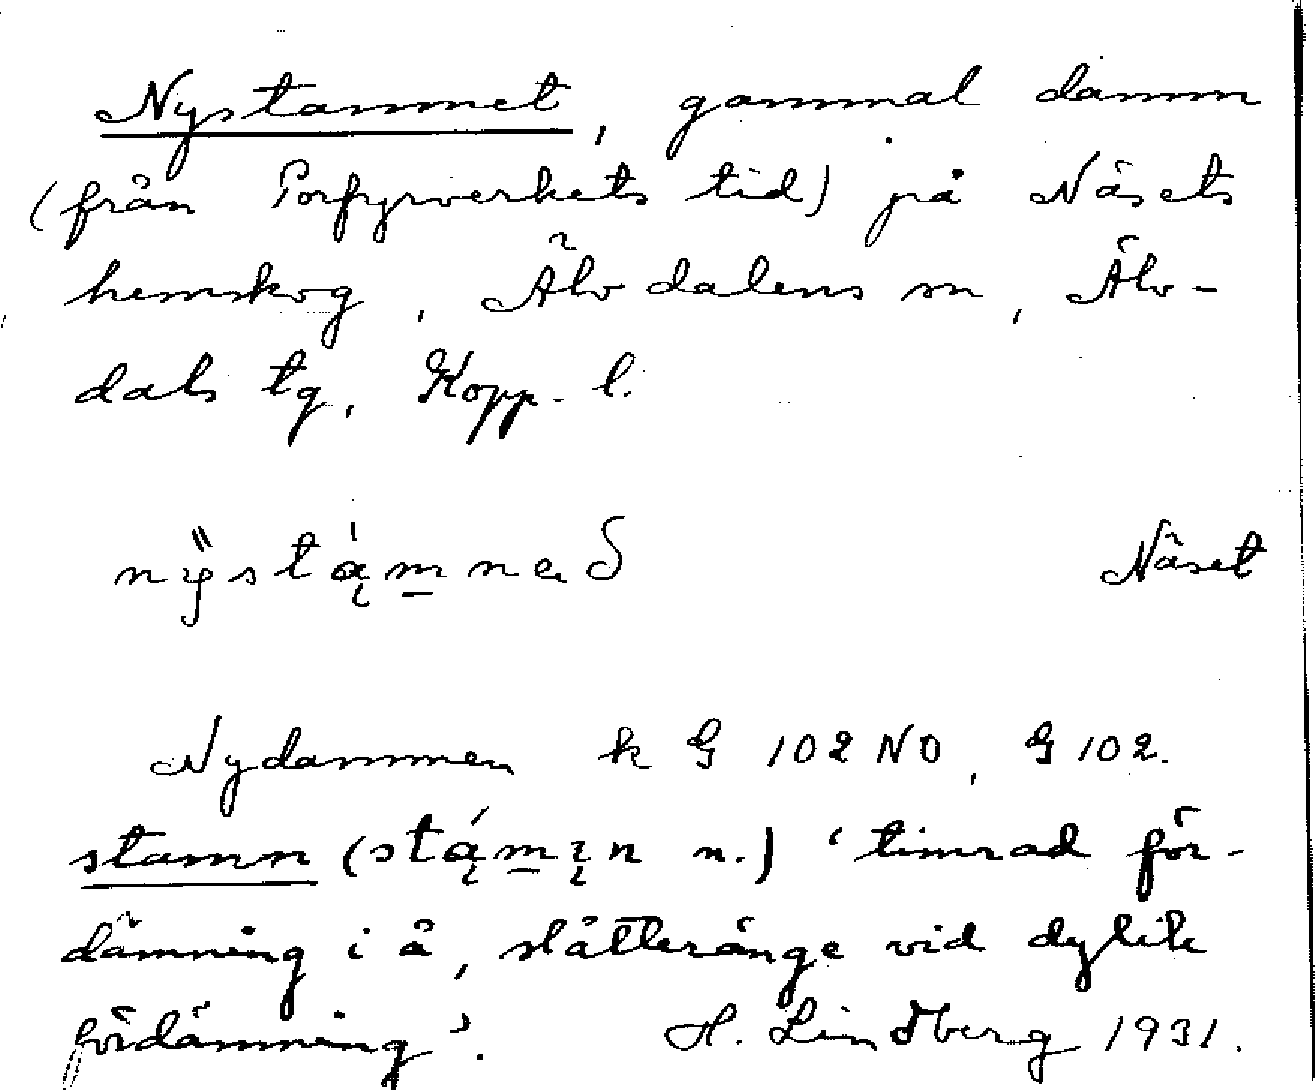 Nystamnet, gammal damm
(från Porfyrverkets tid) på Näsets
hemskog, Älvdalens sn, Älv-
dals tg, Kopp. l.
Näset
Nydammen k G 102 NO, G 102.
stamn (stą́m̲įn n.) 'timrad för-
dämning i å, slåtteränge vid dylik
fördämning'. H. Lindberg 1931.